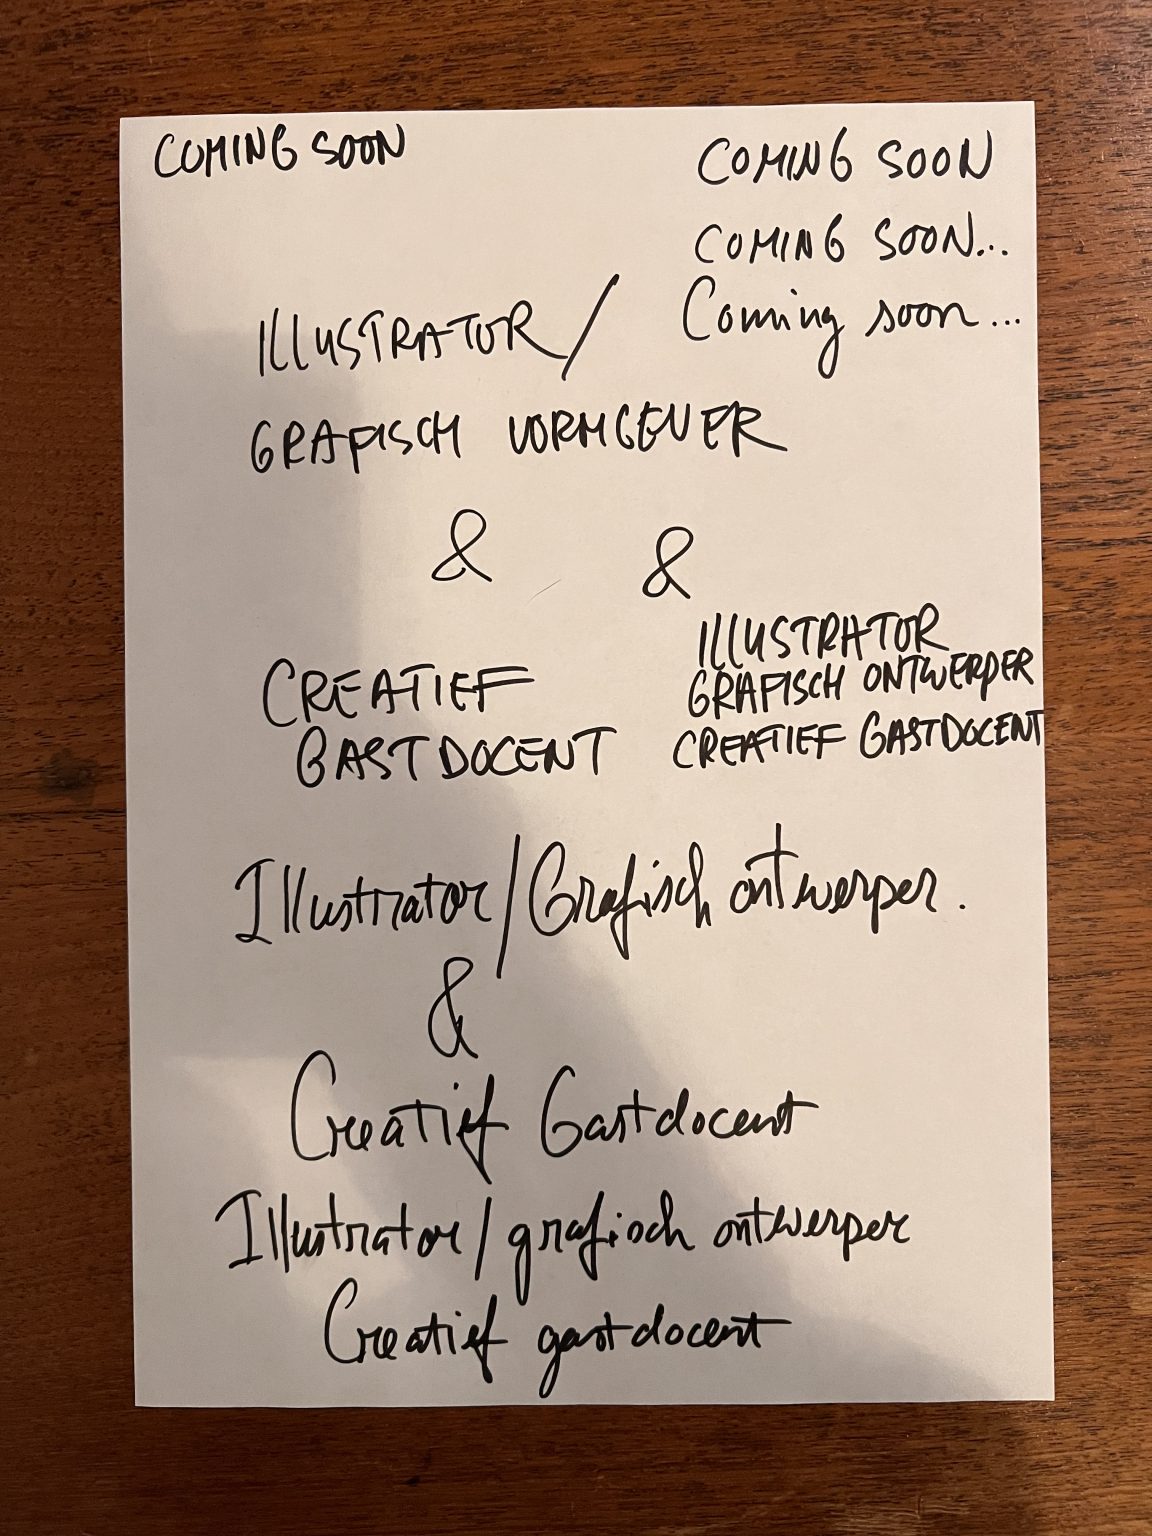 COMING SOON
COMING SOON
COMING SOON...
Coming soon...
ILLUSTRATOR/
GRAFISCH VORMGEVER
&
&
ILLUSTRATOR
GRAFISCH ONTWERPER
CREATIEF GASTDOCENT
CREATIEF
GASTDOCENT
Illustrator/Grafisch ontwerper.
&
Creatief Gastdocent
Illustrator/grafisch ontwerper
Creatief gastdocent